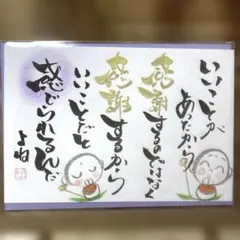 いいことが
あったから
感謝するのではなく
感謝するから
いいことだと
感じられるんだ
よね